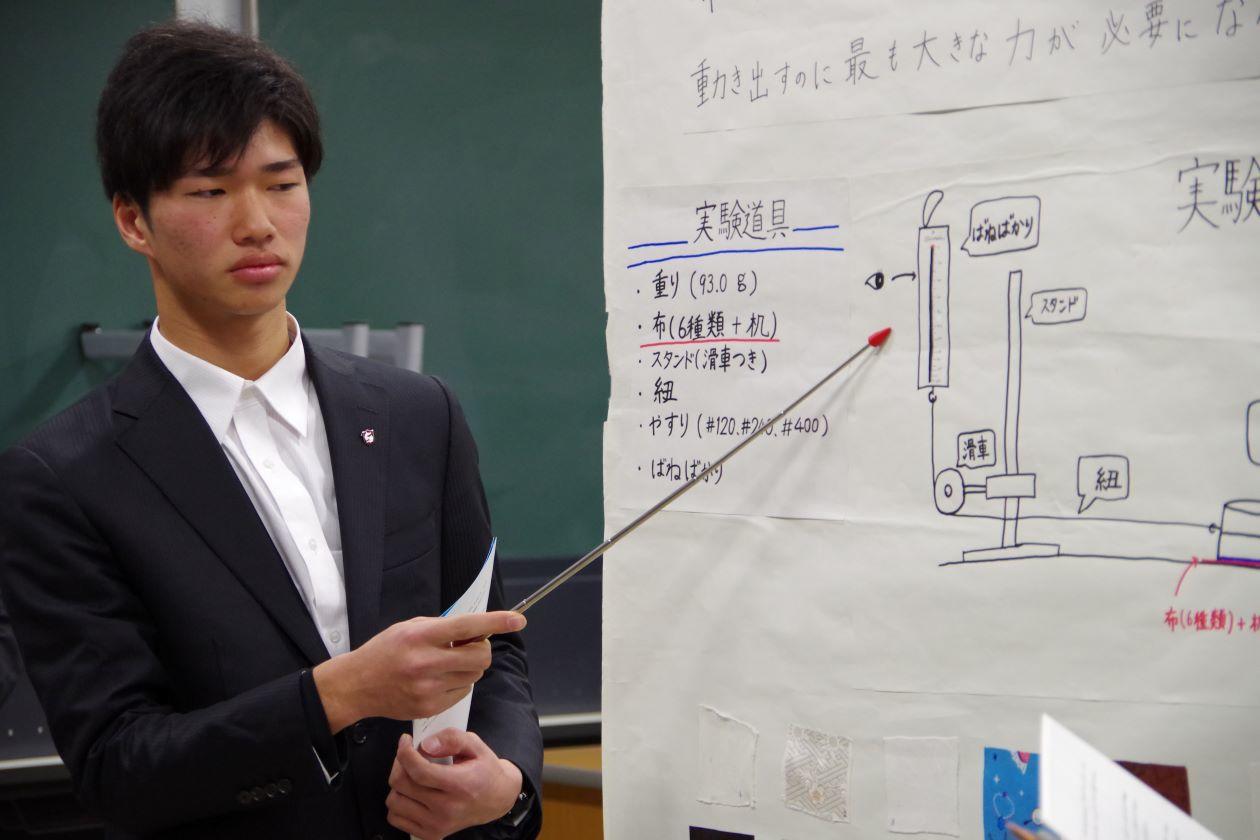 動き出すのに最も大きな力が必要にな
実験道具
・重り(93.0g)
・布(6種類+机)
・スタンド(滑車つき)
・紐
・やすり(#120、#240、#400)
・ばねばかり
実験
ばねばかり
スタンド
滑車
紐
布(6種類)+机